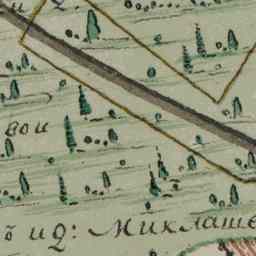 вои
ъ ид: Миклаше